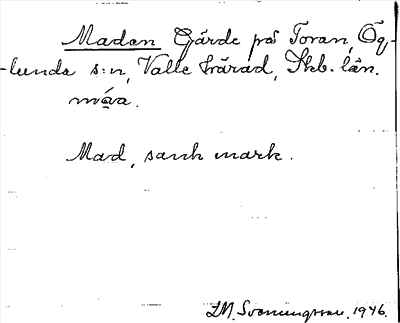 Maden Gärde på Toran, Ög-
-lunda s:n, Valle härad, Skb. län.
máva.
Mad, sank mark.
LM. Svenungsson. 1946.